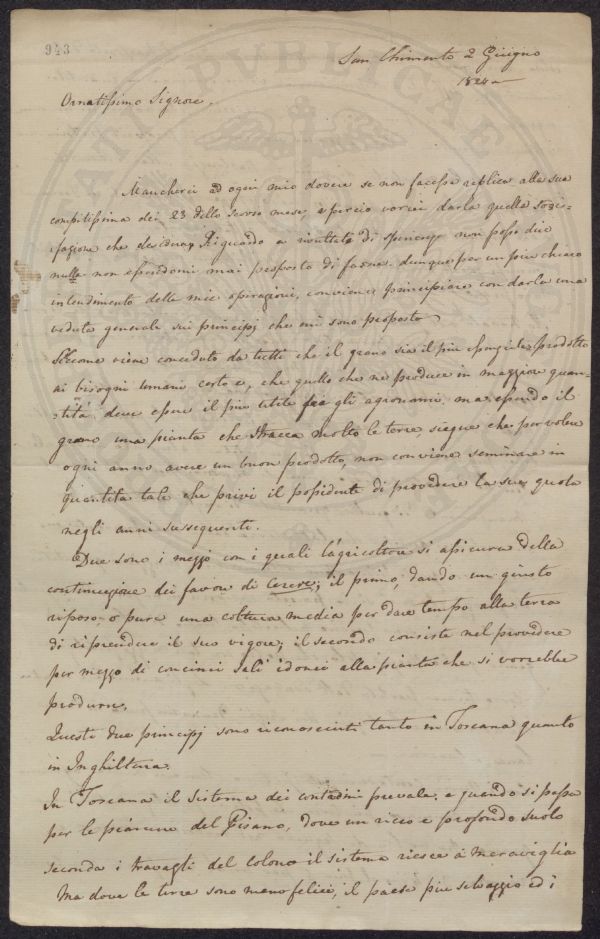 943
San Chimento 2 Giugno
1824
Ornatissimo Signore,
Mancherei ad ogni mio dovere se non facessi replica alla sua
compitissima dei 23 dello scorso mese, e percio vorrei darla quella sodis-
fazione che desidera Riguardo a resultate di spienenze non posso dire
nulla non essendomi mai proposto di farne. dunque per un piu chiaro
intendimento delle mie operazioni, conviene principiare con darla una
veduta generale sui principj che mi sono proposto
Siccome viene conceduto da tutti che il grano sia il piu prodotto
ai bisogni umani certo e, che quello che ne produce in maggiore quan-
tità deve essere il piu utile fra gli agronomi, ma essendo il
grano una pianta che stracca molto le terre siegue che per volere
ogni anno avere un buon prodotto, non conviene seminare in
quantita tale che privi il possidente di provedere la sua quota
negli anni susseguenti.
Due sono i mezzo con i quali l'agricoltore si assicura della
continuazione dei favori di Cerere; il primo, dando un giusto
riposo o pure una coltura media per dare tempo alla terra
di riprendere il suo vigore; il secondo consiste nel provedere
per mezzo di concimi sali idonei alla pianta che si vorrebbe
produrre,
Questi due principj sono riconosciuti tanto in Toscana quanto
in Inghilterra.
In Toscana il sistema dei contadini prevale. e quando si passa
per le pianure del Pisano, dove un ricco e profondo suolo
seconda i travagli del colono il sistema riesce a meraviglia
Ma dove le terre sono meno felici, il paese piu selvaggio ed i